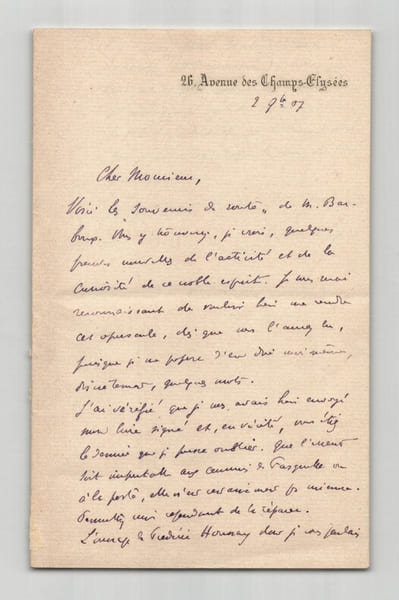 26, Avenue des Champs-Elysées
2 9bre 07
Cher Monsieur,
Voici les "Souvenirs de route" de M. Bar-
boux. Vous y trouverez, je crois, quelques
preuves nouvelles de l'activité et de la
curiosité de ce noble esprit. Je vous serai
reconnaissant de vouloir bien me rendre
cet opuscule, dès que vous l'aurez lu,
puisque je me propose d'en dire moi-même,
discrètement, quelques mots.
J'ai vérifié que je vous avais bien envoyé
mon livre signé et, en vérité, vous étiez
le dernier que je pusse oublier. Que l'erreur
soit imputable aux commis de Fasquelle ou
à la poste, elle n'est certainement pas mienne.
Permettez-moi cependant de la réparer.
L'ouvrage de Frédéric Houssay dont je vous parlais